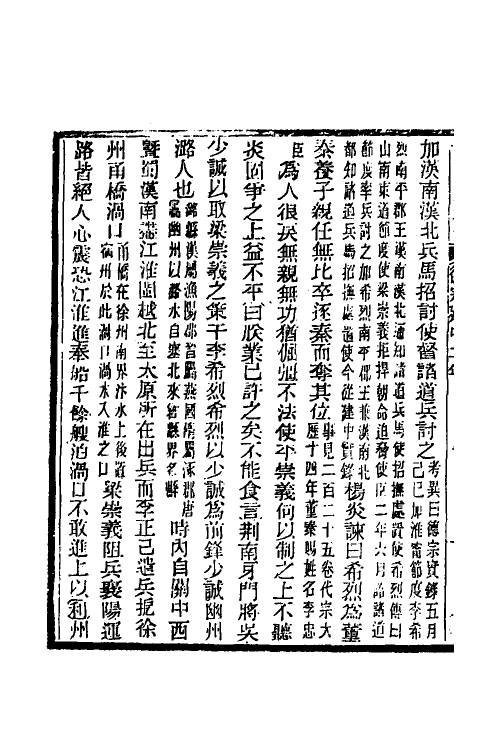 加漢南漢北兵馬招討使督諸道兵討之考異曰德宗實錄五月
己巳加淮甯節度李希
烈南平郡王漢南漢北通知諸道兵馬使招撫處置使希烈傳曰
山南東道節度使梁崇義拒捍朝命迫脅使臣二年六月詔諸道
節度率兵討之加希烈南平郡王兼漢南北
都知諸道兵馬招撫處置使今從建中實錄楊炎諫曰希烈爲董
秦養子親任無比卒逐秦而奪其位事見二百二十五卷代宗大
歷十四年董秦賜姓名李忠
臣爲人很戾無親無功猶倔彊不法使平崇義何以制之上不聽
炎固爭之上益不平曰朕業已許之矣不能食言荆南牙門將吳
少誠以取梁崇義之策干李希烈希烈以少誠爲前鋒少誠幽州
潞人也潞縣漢屬漁陽郡
時內自關中西
暨蜀漢南盡江淮閩越北至太原所在出兵而李正己遣兵扼徐
州甬橋渦口甬橋在徐州南界汴水上後置
宿州於此渦口渦水入淮之口梁崇義阻兵襄陽運
路皆絕人心震恐江淮進奉船千餘艘泊渦口不敢進上以和州